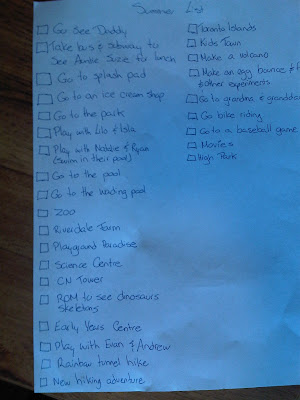 Summer List
Go see Daddy
Take bus & subway to
see Auntie Suze for lunch
Go to splash pad
Go to an ice cream shop
Go to the park
Play with Lilo & Isla
Play with Natalie & Ryan
(swim in their pool)
Go to the pool
Go to the wading pool
ZOO
Riverdale Farm
Playground Paradise
Science Centre
CN Tower
ROM to see dinosaurs
skeletons
Early Years Centre
Play with Evan & Andrew
Rainbow tunnel hike
New hiking adventure
Toronto Islands
Kids Town
Make a volcano
Make an egg bounce
& other experiments
Go to grandma & granddad
Go bike riding
Go to a baseball game
Movies
High Park